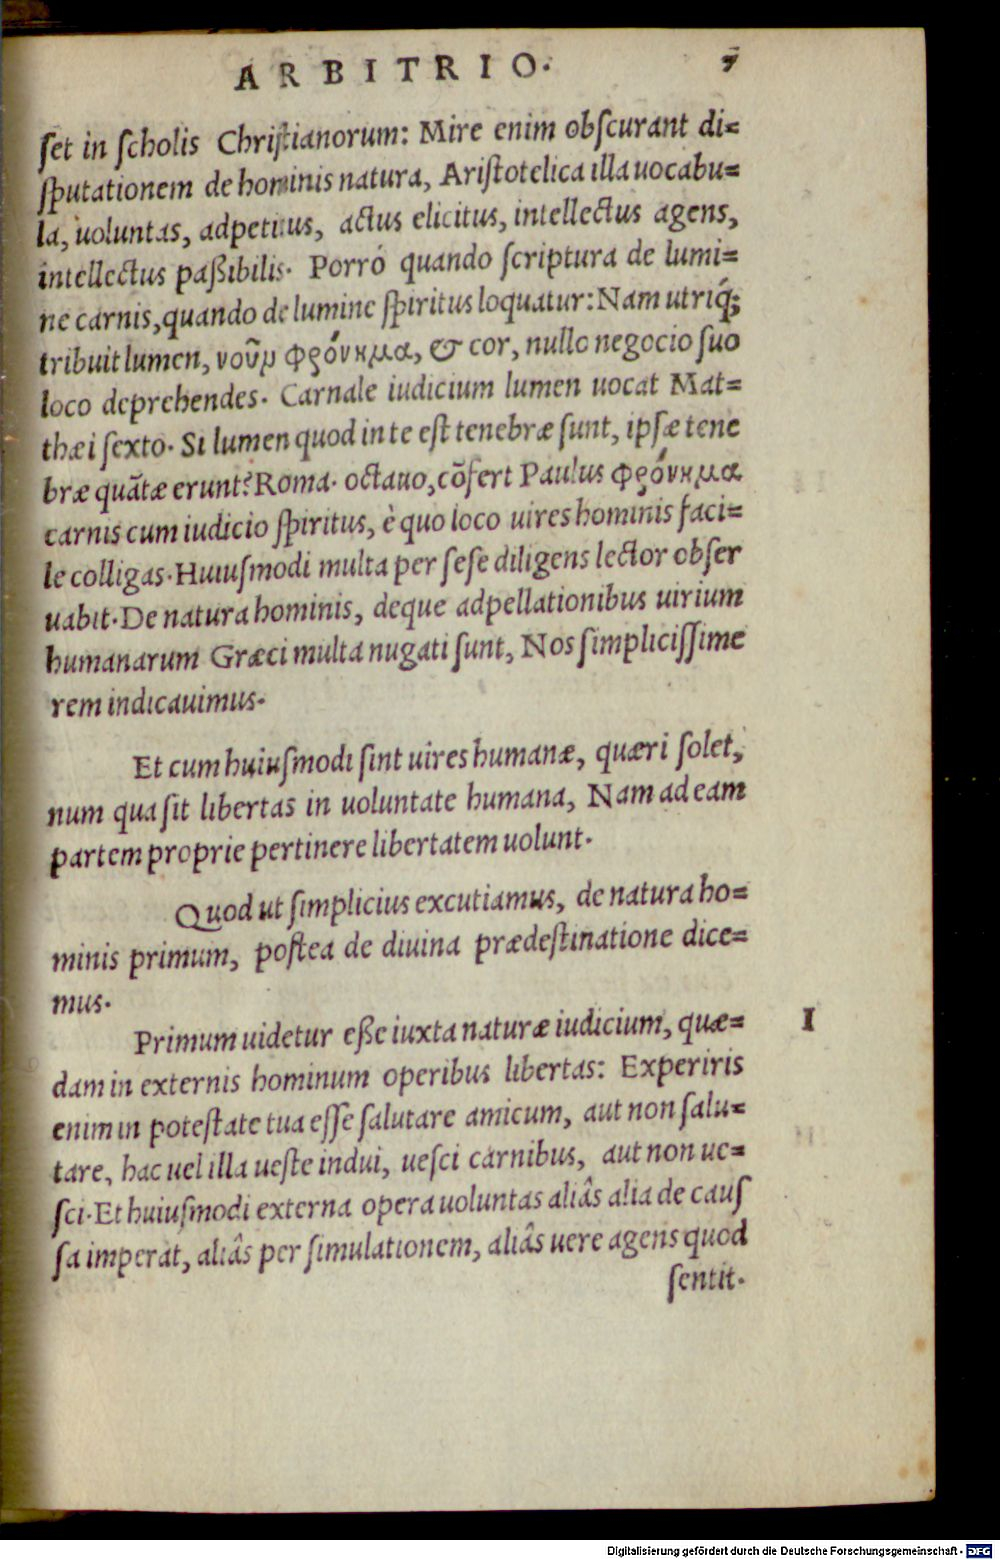 ARBITRIO. 7
ſet in ſcholis Chriſtianorum: Mire enim obſcurant di=
ſputationem de hominis natura, Ariſtotelica illa uocabu=
la, uoluntas, adpetitus, actus elicitus, intellectus agens,
intellectus paßibilis. Porró quando ſcriptura de lumi=
ne carnis, quando de lumine ſpiritus loquatur: Nam utriq́;
tribuit lumen, νοῦμ φρόνημα, & cor, nullo negocio ſuo
loco deprehendes. Carnale iudicium lumen uocat Mat=
thæi ſexto. Si lumen quod in te eſt tenebræ ſunt, ipſæ tene
bræ quãtæ erunt? Roma. octauo, cõfert Paulus φρόνημα
carnis cum iudicio ſpiritus, è quo loco uires hominis faci=
le colligas. Huiuſmodi multa per ſeſe diligens lector obſer
uabit. De natura hominis, deque adpellationibus uirium
humanarum Græci multa nugati ſunt, Nos ſimpliciſſime
rem indicauimus.
Et cum huiuſmodi ſint uires humanæ, quæri ſolet,
num qua ſit libertas in uoluntate humana, Nam ad eam
partem proprie pertinere libertatem uolunt.
Quod ut ſimplicius excutiamus, de natura ho=
minis primum, poſtea de diuina prædeſtinatione dice=
mus.
Primum uidetur eße iuxta naturæ iudicium, quæ= I
dam in externis hominum operibus libertas: Experiris
enim in poteſtate tua eſſe ſalutare amicum, aut non ſalu=
tare, hac uel illa ueſte indui, ueſci carnibus, aut non ue=
ſci. Et huiuſmodi externa opera uoluntas aliâs alia de cauſ
ſa imperat, aliâs per ſimulationem, aliâs uere agens quod
ſentit.
Digitalisierung gefördert durch die Deutsche Forschungsgemeinschaft - DFG